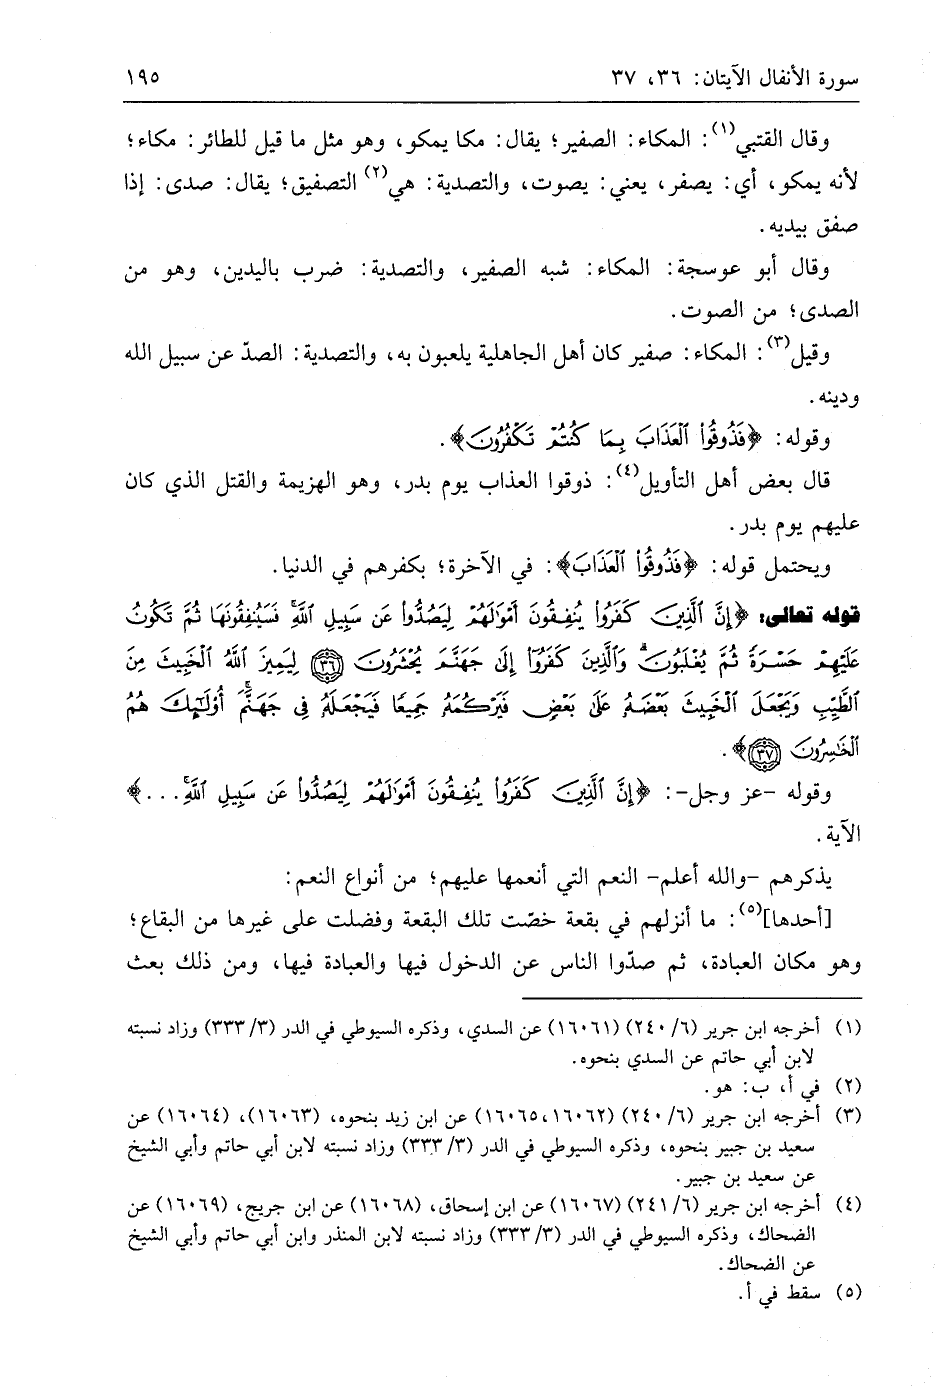 سورة الأنفال الآيتان: ٣٦، ٣٧ ١٩٥
وقال القتبي(١): المكاء: الصفير؛ يقال: مكا يمكو، وهو مثل ما قيل للطائر: مكاء؛
لأنه يمكو، أي: يصفر، يعني: يصوت، والتصدية: هي(٢) التصفيق؛ يقال: صدى: إذا
صفق بيديه.
وقال أبو عوسجة: المكاء: شبه الصفير، والتصدية: ضرب باليدين، وهو من
الصدى؛ من الصوت.
وقيل(٣): المكاء: صفير كان أهل الجاهلية يلعبون به، والتصدية: الصدّ عن سبيل الله
ودينه.
وقوله: ﴿فَذُوقُواْ ٱلْعَذَابَ بِمَا كُنتُمْ تَكْفُرُونَ﴾.
قال بعض أهل التأويل(٤): ذوقوا العذاب يوم بدر، وهو الهزيمة والقتل الذي كان
عليهم يوم بدر.
ويحتمل قوله: ﴿فَذُوقُواْ ٱلْعَذَابَ﴾: في الآخرة؛ بكفرهم في الدنيا.
قوله تعالى: ﴿إِنَّ ٱلَّذِينَ كَفَرُواْ يُنفِقُونَ أَمْوَٰلَهُمْ لِيَصُدُّواْ عَن سَبِيلِ ٱللَّهِۚ فَسَيُنفِقُونَهَا ثُمَّ تَكُونُ
عَلَيْهِمْ حَسْرَةً ثُمَّ يُغْلَبُونَۗ وَٱلَّذِينَ كَفَرُوٓاْ إِلَىٰ جَهَنَّمَ يُحْشَرُونَ ٣٦ لِيَمِيزَ ٱللَّهُ ٱلْخَبِيثَ مِنَ
ٱلطَّيِّبِ وَيَجْعَلَ ٱلْخَبِيثَ بَعْضَهُۥ عَلَىٰ بَعْضٍ فَيَرْكُمَهُۥ جَمِيعًا فَيَجْعَلَهُۥ فِى جَهَنَّمَۚ أُوْلَٰٓئِكَ هُمُ
ٱلْخَٰسِرُونَ ٣٧﴾.
وقوله -عز وجل-: ﴿إِنَّ ٱلَّذِينَ كَفَرُواْ يُنفِقُونَ أَمْوَٰلَهُمْ لِيَصُدُّواْ عَن سَبِيلِ ٱللَّهِۚ ...﴾
الآية.
يذكرهم -والله أعلم- النعم التي أنعمها عليهم؛ من أنواع النعم:
[أحدها](٥): ما أنزلهم في بقعة خصّت تلك البقعة وفضلت على غيرها من البقاع؛
وهو مكان العبادة، ثم صدّوا الناس عن الدخول فيها والعبادة فيها، ومن ذلك بعث
(١) أخرجه ابن جرير (٦/ ٢٤٠) (١٦٠٦١) عن السدي، وذكره السيوطي في الدر (٣/ ٣٣٣) وزاد نسبته
لابن أبي حاتم عن السدي بنحوه.
(٢) في أ، ب: هو.
(٣) أخرجه ابن جرير (٦/ ٢٤٠) (١٦٠٦٢، ١٦٠٦٥) عن ابن زيد بنحوه، (١٦٠٦٣)، (١٦٠٦٤) عن
سعيد بن جبير بنحوه، وذكره السيوطي في الدر (٣/ ٣٣٣) وزاد نسبته لابن أبي حاتم وأبي الشيخ
عن سعيد بن جبير.
(٤) أخرجه ابن جرير (٦/ ٢٤١) (١٦٠٦٧) عن ابن إسحاق، (١٦٠٦٨) عن ابن جريج، (١٦٠٦٩) عن
الضحاك، وذكره السيوطي في الدر (٣/ ٣٣٣) وزاد نسبته لابن المنذر وابن أبي حاتم وأبي الشيخ
عن الضحاك.
(٥) سقط في أ.